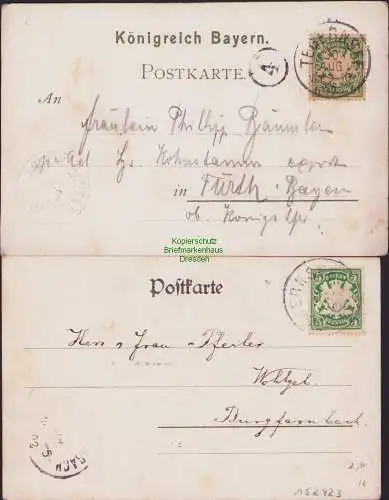 Königreich Bayern.
4
TEGERNSEE
AUG
POSTKARTE.
An
Fräulein Philipp Bäumler
pr Adl Hr. Kohnstamm export
in Fürth - Bayern
ob. Königstr.
Kopierschutz
Briefmarkenhaus
Dresden
Postkarte
5 5
Herr u Frau Pferler
Wohlgeb.
Burgfarrnbach.
152423